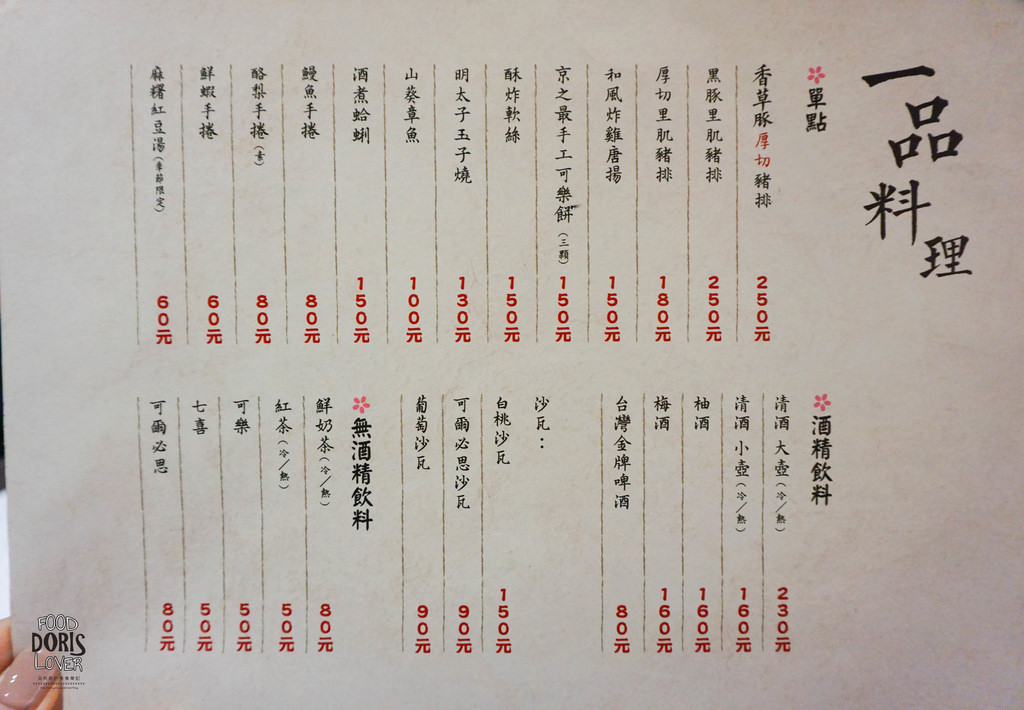 一品料理
單點
香草豚厚切豬排 250元
黑豚里肌豬排 250元
厚切里肌豬排 180元
和風炸雞唐揚 150元
京之最手工可樂餅(三顆) 150元
酥炸軟絲 150元
明太子玉子燒 130元
山葵章魚 100元
酒煮蛤蜊 150元
鰻魚手捲 80元
酪梨手捲(素) 80元
鮮蝦手捲 60元
麻糬紅豆湯(季節限定) 60元
酒精飲料
清酒 大壺(冷/熱) 230元
清酒 小壺(冷/熱) 160元
柚酒 160元
梅酒 160元
台灣金牌啤酒 80元
沙瓦：
白桃沙瓦 150元
可爾必思沙瓦 90元
葡萄沙瓦 90元
無酒精飲料
鮮奶茶(冷/熱) 80元
紅茶(冷/熱) 50元
可樂 50元
七喜 50元
可爾必思 80元
FOOD
DORIS
LOVER